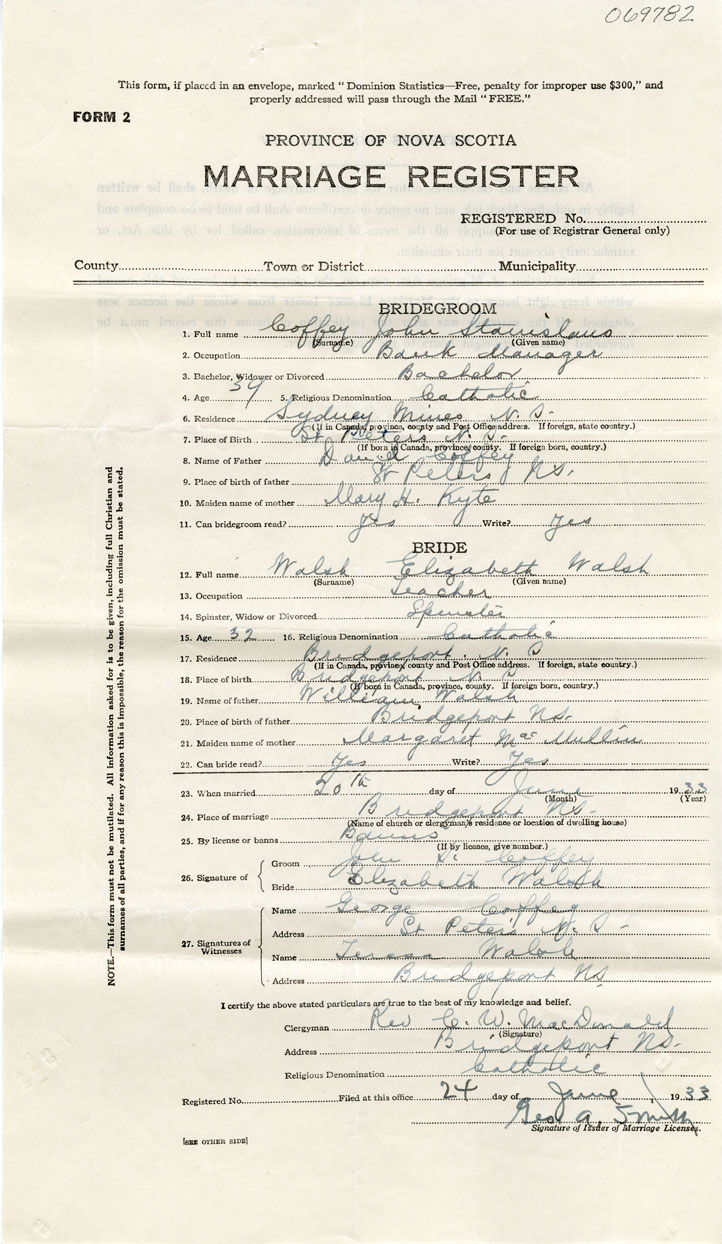 069782
This form, if placed in an envelope, marked "Dominion Statistics—Free, penalty for improper use $300," and
properly addressed will pass through the Mail "FREE."
FORM 2
PROVINCE OF NOVA SCOTIA
MARRIAGE REGISTER
REGISTERED No.
(For use of Registrar General only)
County Town or District Municipality
BRIDEGROOM
1. Full name Coffey John Stanislaus
(Surname) (Given name)
2. Occupation Bank Manager
3. Bachelor, Widower or Divorced Bachelor
4. Age 34 5. Religious Denomination Catholic
6. Residence Sydney Mines N. S.
(If in Canada, province, county and Post Office address. If foreign, state country.)
7. Place of Birth St Peters N. S.
(If born in Canada, province, county. If foreign born, country.)
8. Name of Father Daniel Coffey
9. Place of birth of father St Peters N.S.
10. Maiden name of mother Mary H. Kyte
11. Can bridegroom read? yes Write? yes
BRIDE
12. Full name Walsh Elizabeth Walsh
(Surname) (Given name)
13. Occupation Teacher
14. Spinster, Widow or Divorced Spinster
15. Age 32 16. Religious Denomination Catholic
17. Residence Bridgeport. N. S
(If in Canada, province, county and Post Office address. If foreign, state country.)
18. Place of birth Bridgeport N. S
(If born in Canada, province, county. If foreign born, country.)
19. Name of father William Walsh
20. Place of birth of father Bridgeport NS.
21. Maiden name of mother Margaret MacMullin
22. Can bride read? Yes Write? Yes
23. When married 20th day of June 1933
(Month) (Year)
24. Place of marriage Bridgeport NS.
(Name of church or clergyman's residence or location of dwelling house)
25. By license or banns Banns
(If by licence, give number.)
26. Signature of Groom John S. Coffey
Bride Elizabeth Walsh
27. Signatures of Witnesses Name George Coffey
Address St Peters N. S.
Name Teresa Walsh
Address Bridgeport NS
I certify the above stated particulars are true to the best of my knowledge and belief.
Clergyman Rev C. W. MacDonald
(Signature)
Address Bridgeport NS.
Religious Denomination Catholic
Registered No. Filed at this office 24 day of June 1933
Geo A. Smith
Signature of Issuer of Marriage Licenses.
[SEE OTHER SIDE]
NOTE.—This form must not be mutilated. All information asked for is to be given, including full Christian and
surnames of all parties, and if for any reason this is impossible, the reason for the omission must be stated.